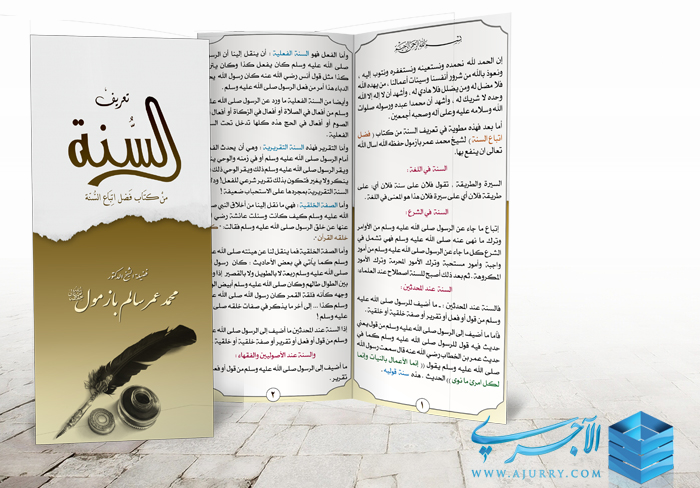 تعريف
السُّنة
من كتاب فضل اتباع السنة
فضيلة الشيخ الدكتور
محمد عمر سالم بازمول
إن الحمد لله نحمده ونستعينه ونستغفره ونتوب إليه ،
ونعوذ بالله من شرور أنفسنا وسيئات أعمالنا ، من يهده الله
فلا مضل له ومن يضلل فلا هادي له ، وأشهد أن لا إله إلا الله
وحده لا شريك له ، وأشهد أن محمدا عبده ورسوله صلوات
الله وسلامه عليه وعلى آله وصحبه أجمعين.
أما بعد فهذه مطوية في تعريف السنة من كتاب ( فضل
اتباع السنة ) لشيخ محمد عمر بازمول حفظه الله اسأل الله
تعالى ان ينفع بها.
السنة في اللغة :
السيرة والطريقة ، تقول فلان على سنة فلان أي: على
طريقة فلان أي على سيرة فلان هذا هو المعنى في اللغة.
السنة في الشرع :
إتباع ما جاء عن الرسول صلى الله عليه وسلم من الأوامر
وترك ما نهى عنه صلى الله عليه وسلم فهي تشمل في
الشرع كل ما جاء عن الرسول صلى الله عليه وسلم من أمور
واجبة وأمور مستحبة وترك الأمور المحرمة وترك الأمور
المكروهة, ثم بعد ذلك أصبح للسنة اصطلاح عند العلماء:
السنة عند المحدثين :
فالسنة عند المحدثين : ـ ما أضيف للرسول صلى الله عليه
وسلم من قول أو فعل أو تقرير أو صفة خلقية أو خلقية.
فأما ما أضيف إلى الرسول صلى الله عليه وسلم من قول يعني
حديث فيه قول للرسول صلى الله عليه وسلم كما في
حديث عمر بن الخطاب رضي الله عنه قال سمعت رسول الله
صلى الله عليه وسلم يقول (( إنما الأعمال بالنيات وإنما
لكل امرئ ما نوى )) الحديث , هذه سنة قولية .
١
وأما الفعل فهو السنة الفعلية : أن ينقل إلينا أن الرسول
صلى الله عليه وسلم كان يفعل كذا وكان
كذا مثل قول أنس رضي الله عنه كان رسول الله
الدباء هذا من فعل الرسول صلى الله عليه وسلم
وأيضا من السنة الفعلية ما ورد عن الرسول صلى الله
وسلم من أفعال في الصلاة أو أفعال في الزكاة أو أفعال
الصوم أو أفعال في الحج هذه كلها تدخل تحت
الفعلية.
وأما التقرير فهذه السنة التقريرية : وهي أن يحدث
أمام الرسول صلى الله عليه وسلم أو في زمنه والوحي
الرسول صلى الله عليه وسلم ذلك ويقر الوحي ذلك
ينكر ولا يغير فتكون بذلك تقرير شرعي للفعل!
السنة التقريرية بمجردها على الاستحباب ضعيفة !
وأما الصفة الخلقية : فهي ما نقل إلينا من أخلاق النبي
الله عليه وسلم كيف كانت وسئلت عائشة رضي
عنها عن خلق الرسول صلى الله عليه وسلم فقالت:
خلقه القرآن".
وأما الصفة الخلقية فما ينقل لنا عن هيئته صلى الله
وسلم كما يأتي في بعض الأحاديث : كان رسول
صلى الله عليه وسلم ربعة لا بالطويل ولا بالقصير إذا
بين الطوال طالهم وكان صلى الله عليه وسلم أبيض
وجهه كأنه فلقة القمر كان رسول الله صلى الله عليه
وسلم كذا ... إلى آخر ما ينكر في صفات خلقه صلى الله
وسلم !
إذا السنة عند المحدثين ما أضيف إلى الرسول صلى الله
وسلم من قول أو فعل أو تقرير أو صفة خلقية أو خلقية.
والسنة عند الأصوليين والفقهاء :
ما أضيف إلى الرسول صلى الله عليه وسلم من قول أو فعل
تقرير.
٢
الآجري
WWW.AJURRY.COM